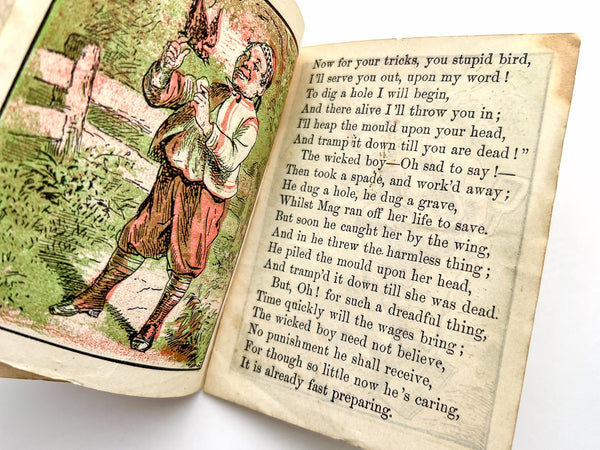 Now for your tricks, you stupid bird,
I'll serve you out, upon my word!
To dig a hole I will begin,
And there alive I'll throw you in;
I'll heap the mould upon your head,
And tramp it down till you are dead!"
The wicked boy—Oh sad to say!—
Then took a spade, and work'd away;
He dug a hole, he dug a grave,
Whilst Mag ran off her life to save.
But soon he caught her by the wing,
And in he threw the harmless thing;
He piled the mould upon her head,
And tramp'd it down till she was dead.
But, Oh! for such a dreadful thing,
Time quickly will the wages bring;
The wicked boy need not believe,
No punishment he shall receive,
For though so little now he's caring,
It is already fast preparing.